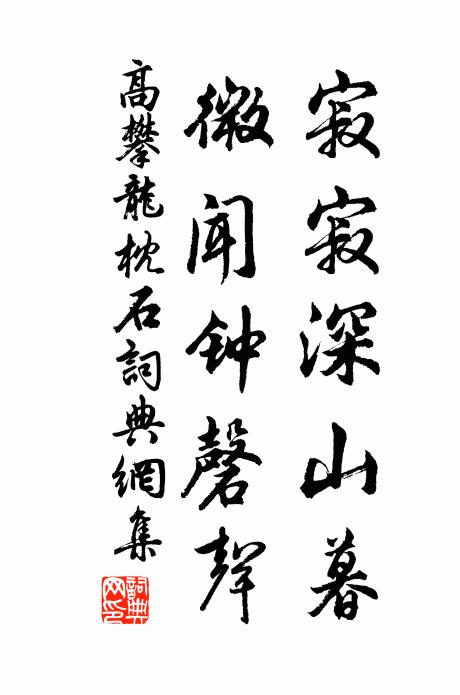 寂寂深山暮
微闻钟磬聲
高攀龍枕石詞典網集
詞典
网印